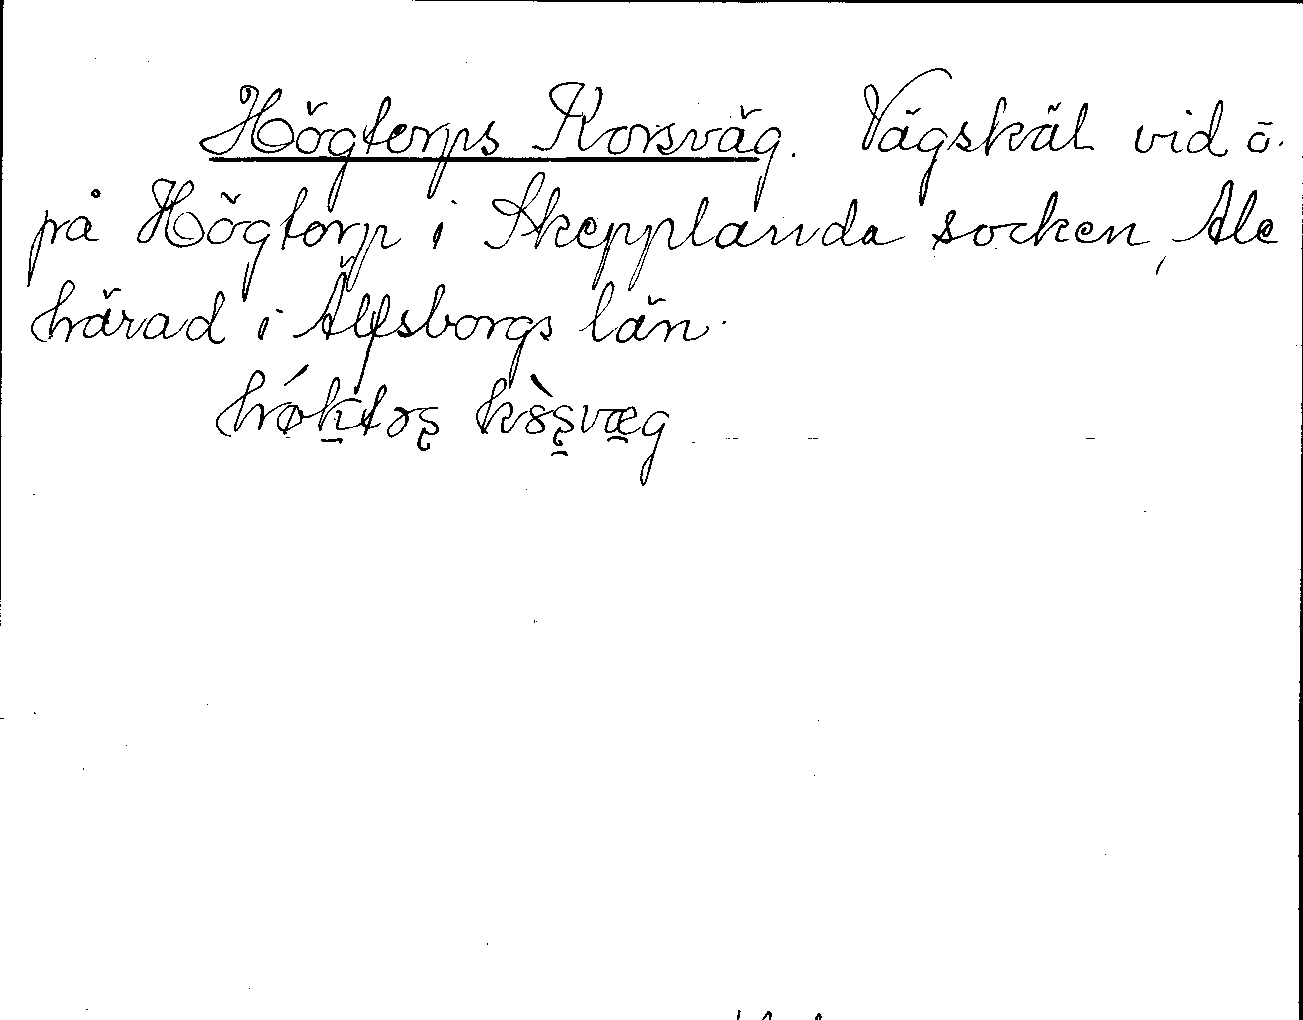 Högtorps Korsväg. Vägskäl vid ö.
på Högtorp i Skepplanda socken, Ale
härad i Älfsborgs län.
hǿk̠tɔʂ